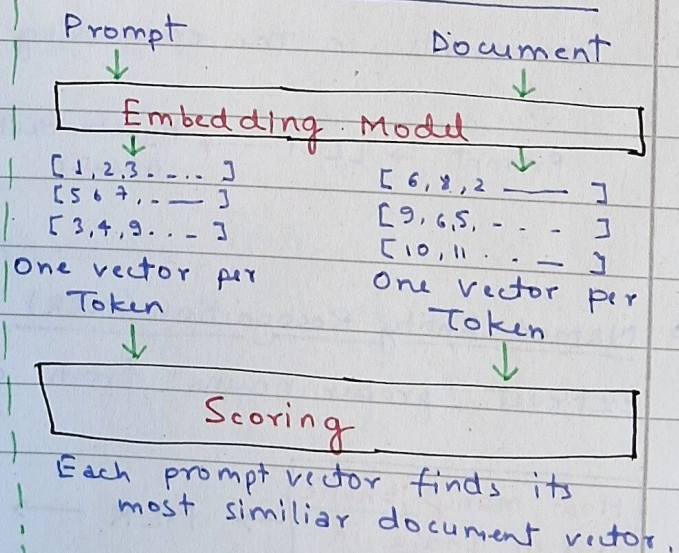 Prompt
Document
Embedding Model
[1, 2, 3 . - - . ]
[5 6 7, . - — ]
[3, 4, 9 . . - ]
One vector per
Token
[6, 8, 2 —— ]
[9, 6, 5, - - - ]
[10, 11 . . — ]
One vector per
Token
Scoring
Each prompt vector finds its
most similiar document vector.